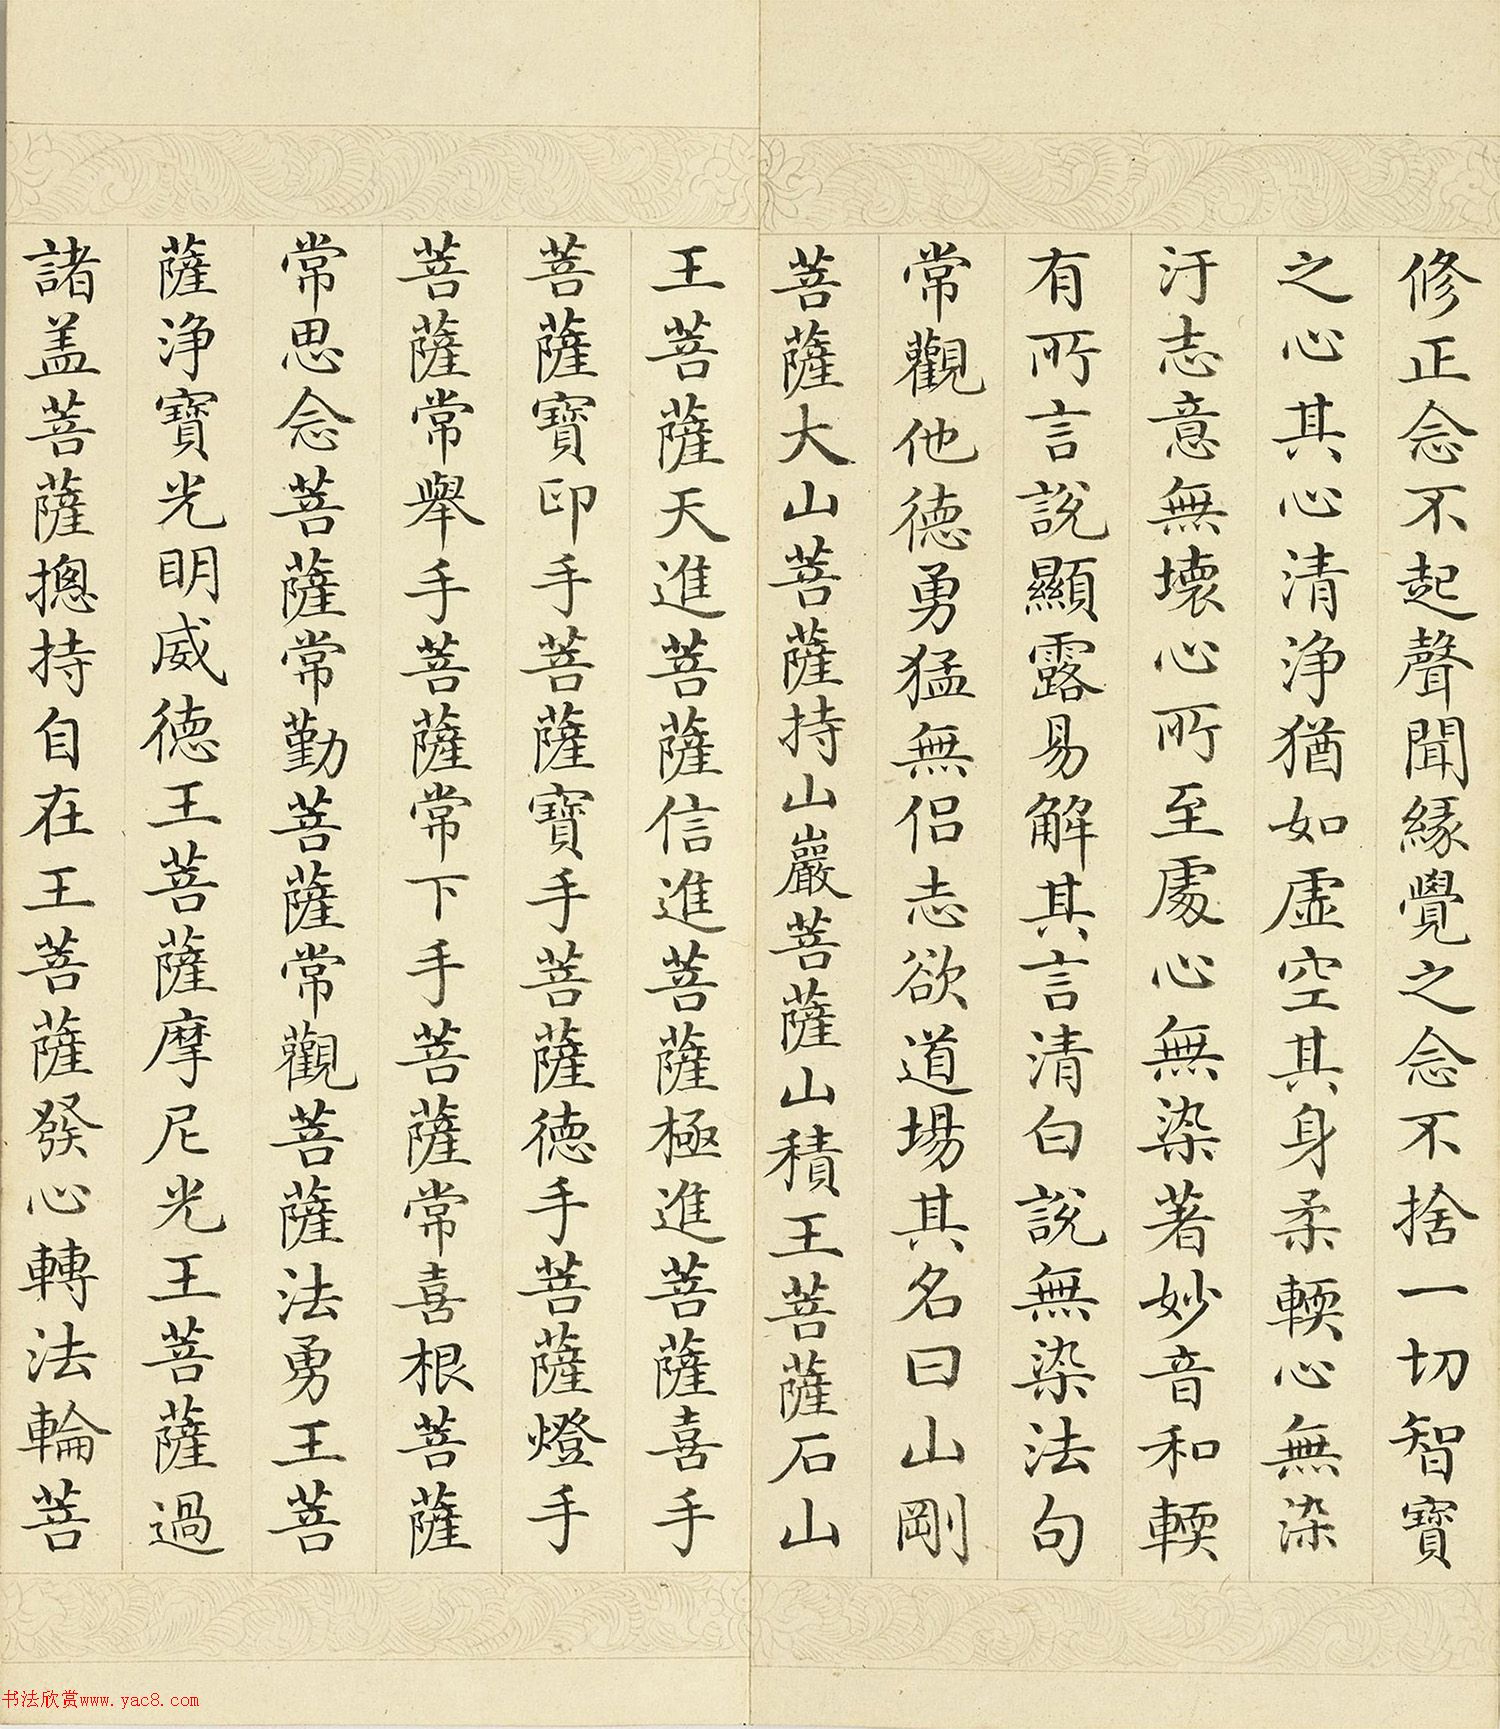 修正念不起聲聞緣覺之念不捨一切智寶
之心其心清淨猶如虛空其身柔輭心無染
汙志意無壞心所至處心無染著妙音和輭
有所言說顯露易解其言清白說無染法句
常觀他德勇猛無侶志欲道場其名曰山剛
菩薩大山菩薩持山巖菩薩山積王菩薩石山
王菩薩天進菩薩信進菩薩極進菩薩喜手
菩薩寶印手菩薩寶手菩薩德手菩薩燈手
菩薩常舉手菩薩常下手菩薩常喜根菩薩
常思念菩薩常勤菩薩常觀菩薩法勇王菩
薩淨寶光明威德王菩薩摩尼光王菩薩過
諸盖菩薩摠持自在王菩薩發心轉法輪菩
书法欣赏www.yac8.com